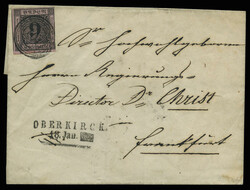 9
Sr. Hochwohlgeboren
Herrn Regierungs-
Director Dr. Christ
OBERKIRCH.
18. Jan.
Frankfurt